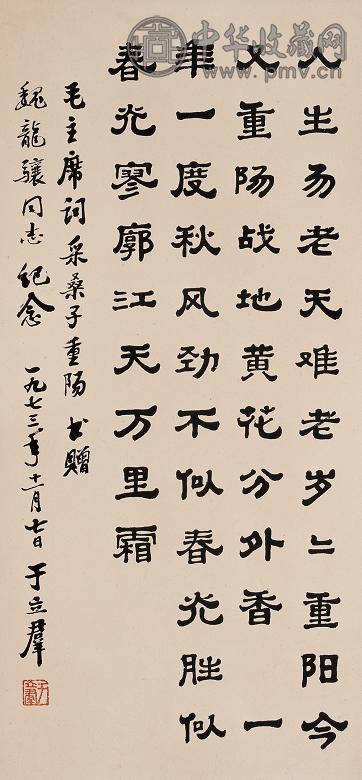 中华收藏网
www.pmv.cn
人生易老天难老岁々重阳今
又重阳战地黄花分外香一
年一度秋风劲不似春光胜似
春光寥廓江天万里霜
毛主席词采桑子重阳书赠
魏龍驤同志纪念一九七三年十一月七日于立羣